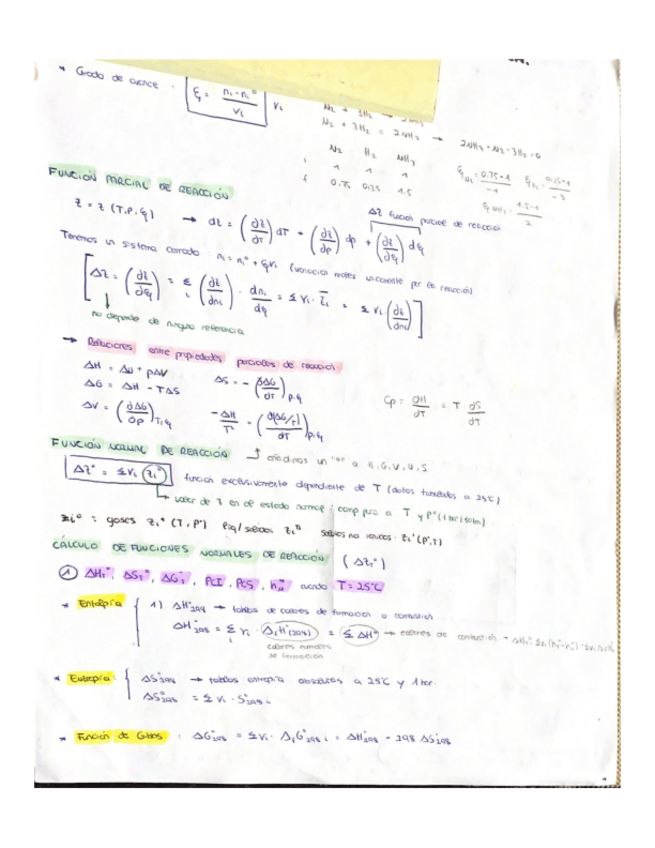 * Grado de avance : ξ = (nᵢ - nᵢ°) / νᵢ νᵢ
N₂ + 3H₂ = 2NH₃ → 2NH₃ - N₂ - 3H₂ = 0
N₂ H₂ NH₃
i 1 1 1
f 0.75 0.25 1.5
ξN₂ = (0.75-1) / -1 ξH₂ = (0.25-1) / -3
ξNH₃ = (1.5-1) / 2
FUNCIÓN PARCIAL DE REACCIÓN
ΔZ función parcial de reacción
Z = Z (T, P, ξ) → dZ = (∂Z/∂T) dT + (∂Z/∂p) dp + (∂Z/∂ξ) dξ
Tenemos un sistema cerrado : nᵢ = nᵢ° + ξνᵢ (variación moles únicamente por la reacción
[ΔZ = (∂Z/∂ξ) = Σᵢ (∂Z/∂nᵢ) · dnᵢ/dξ = Σ νᵢ · Z̄ᵢ = Σ νᵢ (∂Z/∂nᵢ)]
no depende de ninguna referencia
→ Relaciones entre propiedades parciales de reacción
ΔH = ΔU + pΔV
ΔG = ΔH - TΔS ΔS = - (∂ΔG/∂T)p,ξ
ΔV = (∂ΔG/∂p)T,ξ -ΔH/T² = (∂(ΔG/T)/∂T)p,ξ
Cp = ∂H/∂T = T ∂S/∂T
FUNCIÓN NORMAL DE REACCIÓN
añadimos un "°" a H, G, V, U, S
ΔZ° = Σ νᵢ Zᵢ° función exclusivamente dependiente de T (datos tabulados a 25°C)
valor de Z en el estado normal : comp puro a T y P° (1 bar
Zᵢ° : gases Zᵢ° (T, P°) líq/sólidos Zᵢ° sólidos no iónicos : Zᵢ° (P°, T)
CÁLCULO DE FUNCIONES NORMALES DE REACCIÓN (ΔZT°)
① ΔHT°, ΔST°, ΔGT°, PCI, PCS, cuando T = 25°C
* Entalpía { 1) ΔH°298 → tablas de calores de formación o combustión
ΔH°298 = Σᵢ νᵢ ΔfH°(298) = Σ ΔH° → calores de combustión
calores normales
de formación
* Entropía { ΔS°298 → tablas entropía absolutas a 25°C y 1 bar
ΔS°298 = Σ νᵢ · S°298 i
* Función de Gibbs : ΔG°298 = Σ νᵢ · ΔfG°298 i = ΔH°298 - 298 ΔS°298